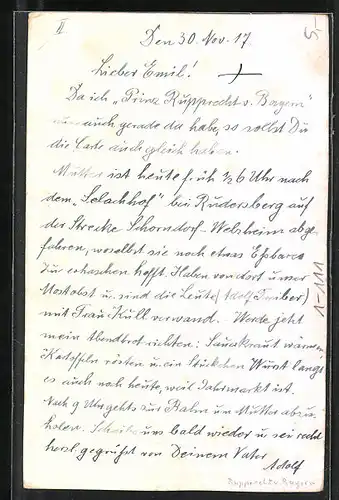 II
Den 30. Nov. 17.
5,-
Lieber Emil!
Da ich „Prinz Rupprecht v. Bayern"
nun auch gerade da habe, so sollst Du
die Carte auch gleich haben.
Mutter ist heute früh ½6 Uhr nach
dem „Selachhof" bei Rudersberg auf
der Strecke Schorndorf-Welzheim abge-
fahren, woselbst sie noch etwas Eßbares
zu erhaschen hofft. Haben von dort unser
Mostobst u. sind die Leute (Adolf)
mit Frau Kull verwand. Werde jetzt
mein Abendbrot richten: Sauerkraut wärmen,
Kartoffeln rösten u. ein Stückchen Wurst langt
es auch noch heute, weil Jahrmarkt ist.
Nach 9 Uhr gehts zur Bahn um Mutter abzu-
holen. Schreibe uns bald wieder u. sei recht
herzl. gegrüßt von Deinem Vater
Adolf
1-111
Rupprecht v. Bayern